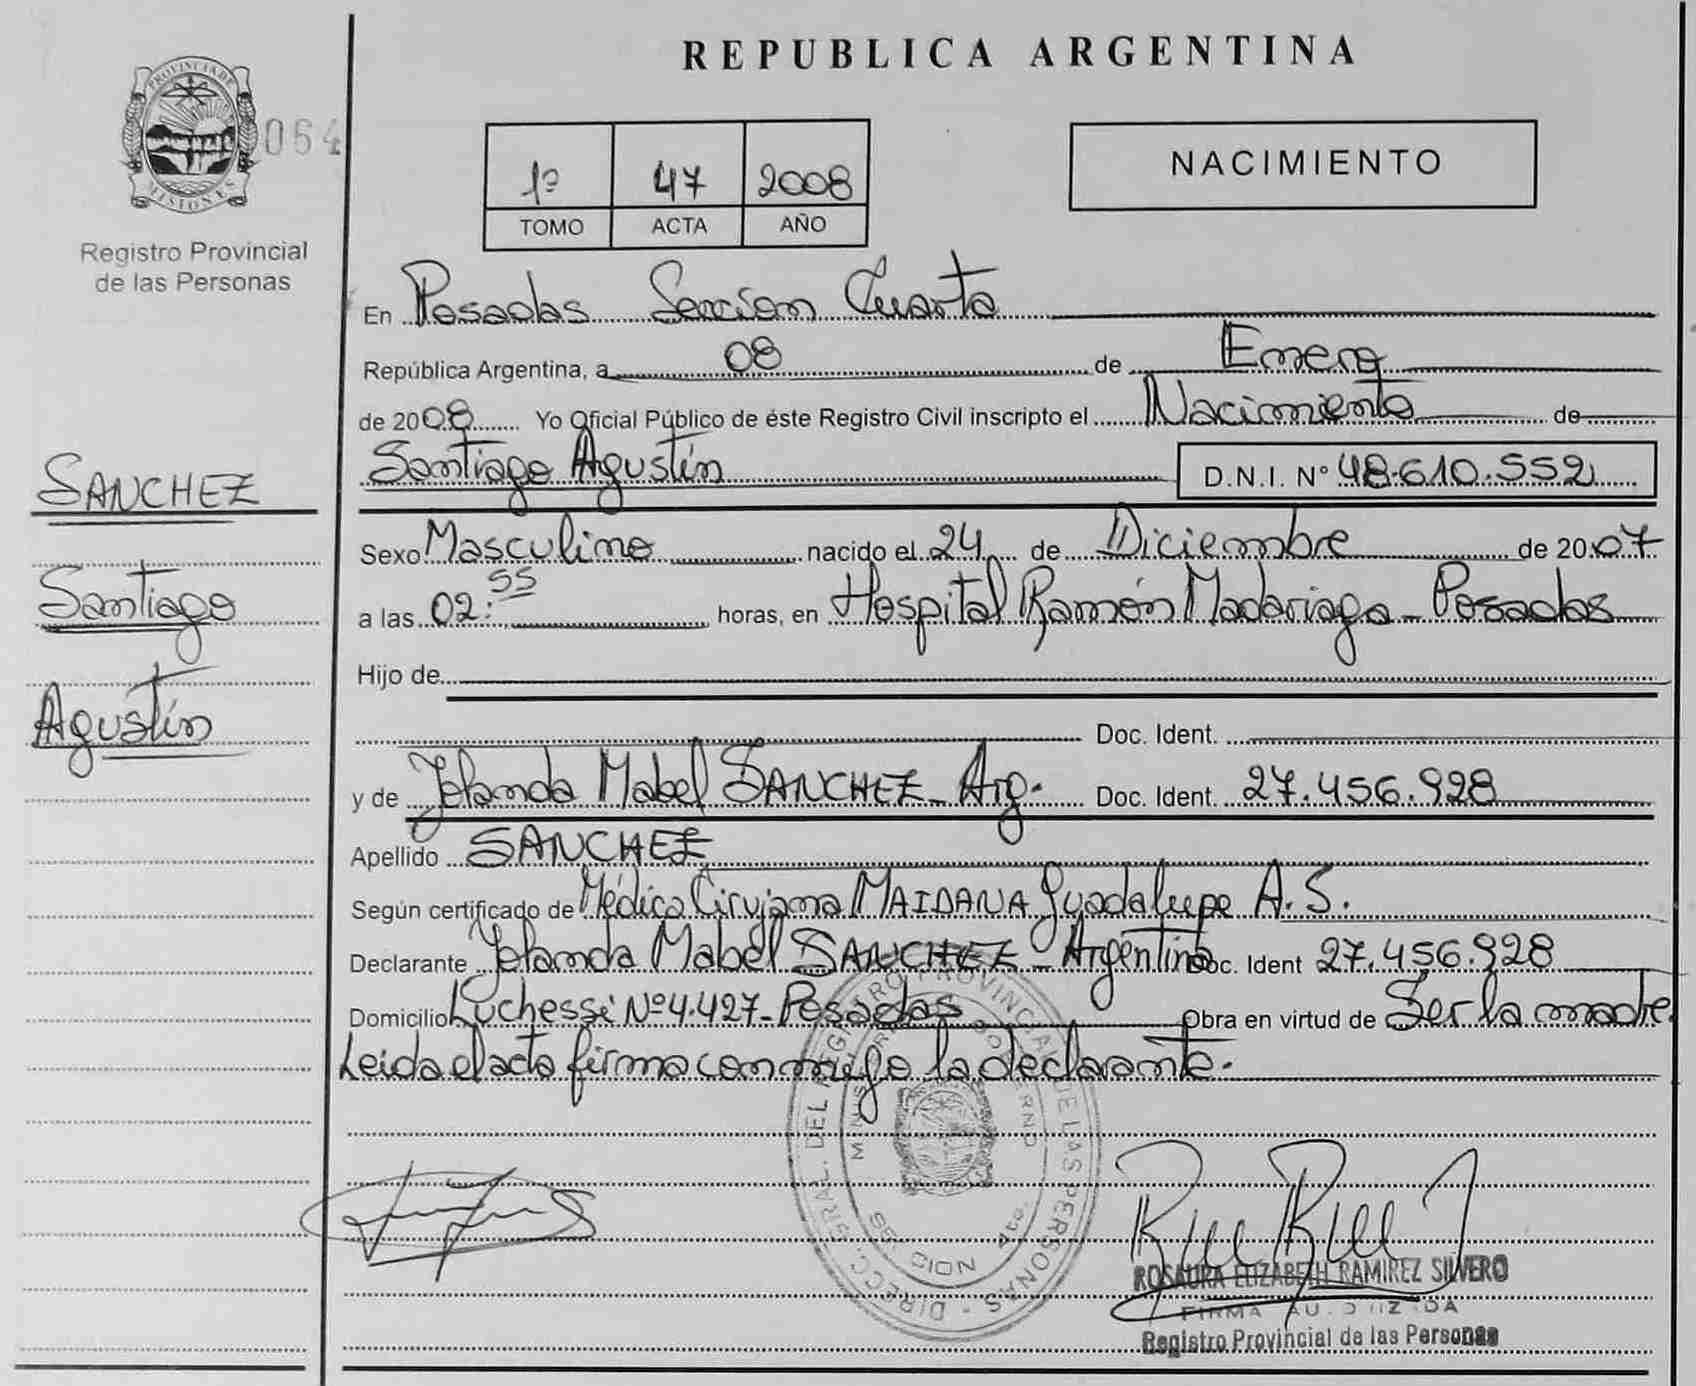 REPUBLICA ARGENTINA
PROVINCIA DE
MISIONES
064
Registro Provincial
de las Personas
1º 47 2008
TOMO ACTA AÑO
NACIMIENTO
En Posadas Seccion Cuarta
República Argentina, a 08 de Enero
de 2008 Yo Oficial Público de éste Registro Civil inscripto el Nacimiento de
Santiago Agustín D.N.I. Nº 48.610.552
SANCHEZ
Santiago
Agustín
Sexo Masculino nacido el 24 de Diciembre de 2007
a las 02:55 horas, en Hospital Ramón Madariaga - Posadas
Hijo de
Doc. Ident.
y de Yolanda Mabel SANCHEZ - Arg. Doc. Ident. 27.456.928
Apellido SANCHEZ
Según certificado de Médica Cirujana MAIDANA Guadalupe A. S.
Declarante Yolanda Mabel SANCHEZ - Argentina Doc. Ident 27.456.928
Domicilio Luchessi Nº 4.427 - Posadas Obra en virtud de Ser la madre.
Leida el acta firma conmigo la declarante.
DIRECC. GRAL. DEL REGISTRO PROVINCIAL DE LAS PERSONAS
ROSAURA ELIZABETH RAMIREZ SILVERO
FIRMA AUTORIZADA
Registro Provincial de las Personas